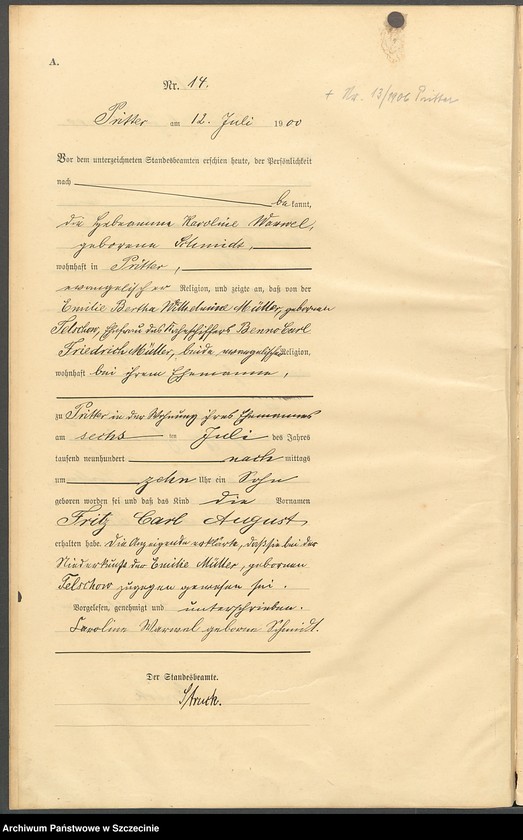 A.
Nr. 14.
+ Nr. 13/1906 Pritter
Pritter am 12. Juli 1900
Vor dem unterzeichneten Standesbeamten erschien heute, der Persönlichkeit
nach
bekannt,
die Hebeamme Karoline Warwel,
geborene Schmidt,
wohnhaft in Pritter,
evangelischer Religion, und zeigte an, daß von der
Emilie Bertha Wilhelmine Müller, geborenen
Telschow, Ehefrau des Benno Carl
Friedrich Müller, beide evangelischer Religion,
wohnhaft bei ihrem Ehemanne,
zu Pritter in der Wohnung ihres Ehemannes
am sechs ten Juli des Jahres
tausend neunhundert nach mittags
um zehn Uhr ein Sohn
geboren worden sei und daß das Kind die Vornamen
Fritz Carl August
erhalten habe. Die Anzeigende erklärte, daß sie bei der
Niederkunft der Emilie Müller, geborenen
Telschow zugegen gewesen sei.
Vorgelesen, genehmigt und unterschrieben.
Caroline Warwel geborne Schmidt.
Der Standesbeamte.
Struck.
Archiwum Państwowe w Szczecinie